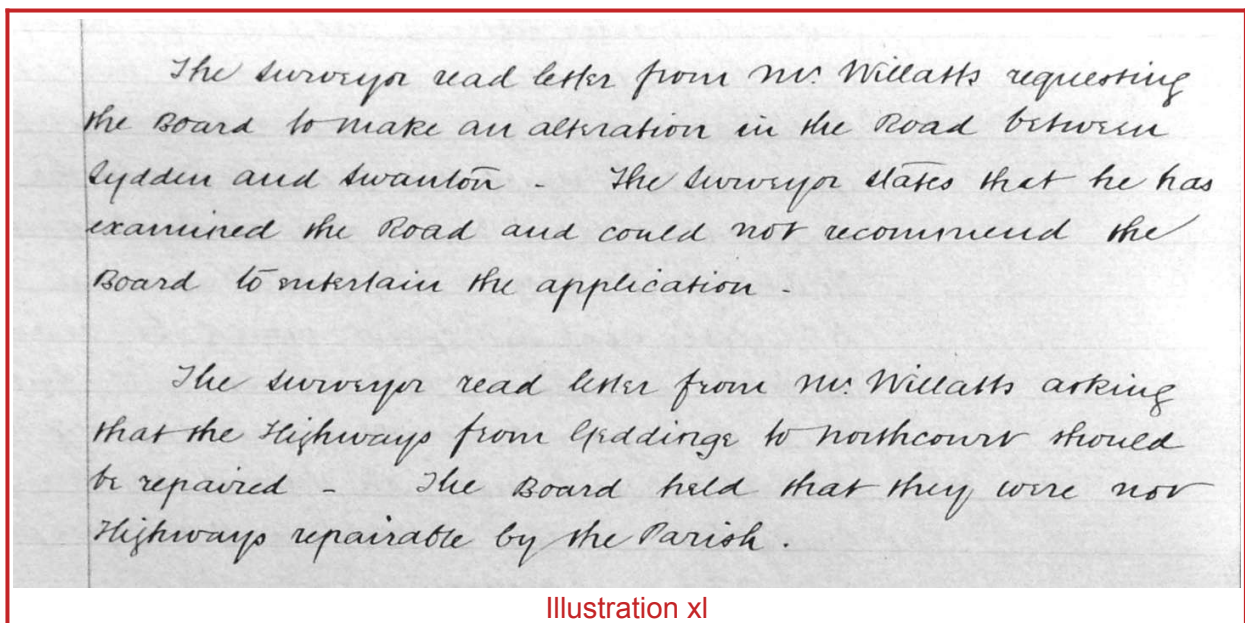 The Surveyor read letter from Mr. Willatts requesting
the Board to make an alteration in the Road between
Lydden and Swanton - The Surveyor states that he has
examined the Road and could not recommend the
Board to entertain the application.
The Surveyor read letter from Mr. Willatts asking
that the Highways from Geddinge to Northcourt should
be repaired - The Board held that they were not
Highways repairable by the Parish.
Illustration xl